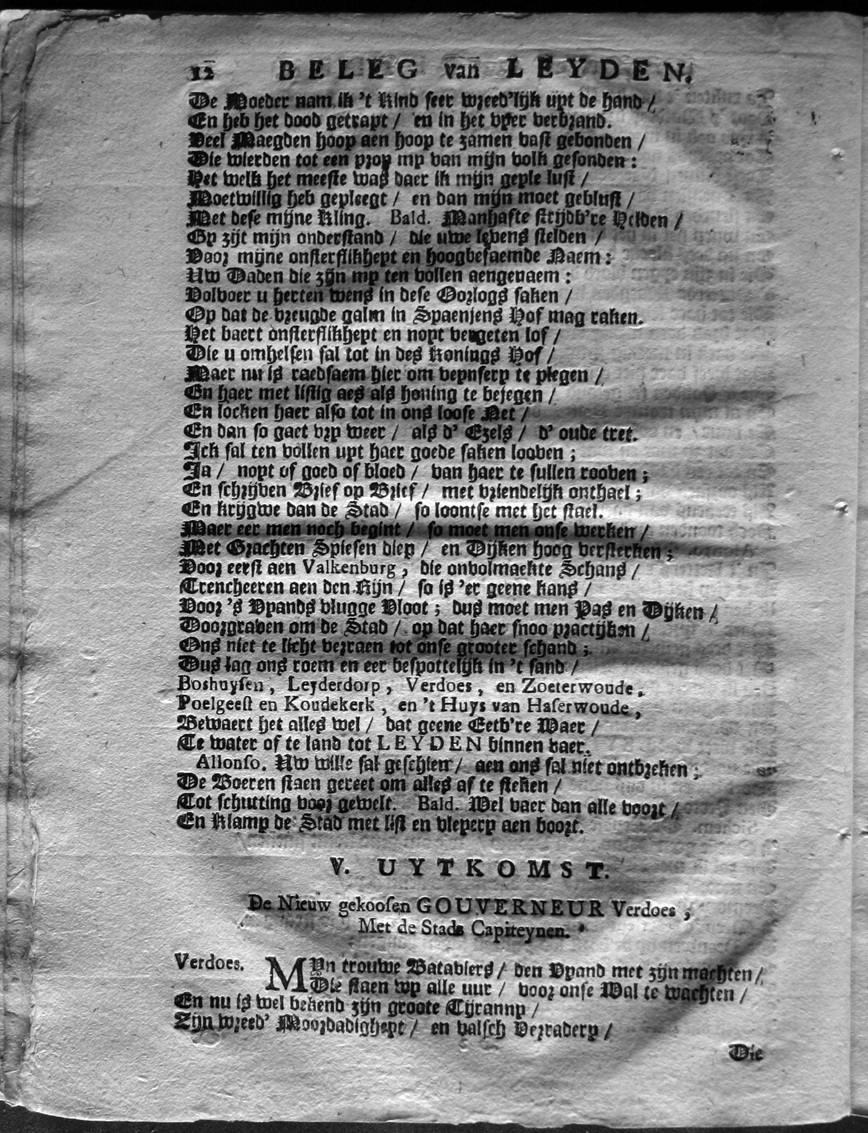 12 BELEG van LEYDEN.
De Moeder nam ik 't Kind seer wreed'lijk uyt de hand /
En heb het dood getrapt / en in het vyer verbrand.
Veel Maegden hoop aen hoop te zamen vast gebonden /
Die wierden tot een prop my van mijn volk gesonden :
Het welk het meeste was daer ik mijn geyle lust /
Moetwillig heb gepleegt / en dan mijn moet geblust /
Met dese mijne Kling. Bald. Manhafte strijdb're Helden /
Gy zijt mijn onderstand / die uwe levens stelden /
Voor mijne onsterflikheyt en hoogbefaemde Naem :
Uw Daden die zijn my ten vollen aengenaem :
Volvoer u herten wens in dese Oorlogs saken /
Op dat de vreugde galm in Spaenjens Hof mag raken.
Het baert onsterflikheyt en noyt vergeten lof /
Die u omhelsen sal tot in des Konings Hof /
Maer nu is raedsaem hier om veynsery te plegen /
En haer met listig aes als honing te bejegen /
En locken haer also tot in ons loose Net /
En dan so gaet vry weer / als d' Ezels / d' oude tret.
Ick sal ten vollen uyt haer goede saken looven ;
Ja / noyt of goed of bloed / van haer te sullen rooven ;
En schrijven Brief op Brief / met vriendelijk onthael ;
En krijgwe dan de Stad / so loontse met het stael.
Maer eer men noch begint / so moet men onse werken /
Met Grachten Spiesen diep / en Dijken hoog versterken ;
Voor eerst aen Valkenburg, die onvolmaekte Schans /
Trencheeren aen den Rijn / so is 'er geene kans /
Voor 's Vyands vlugge Vloot ; dus moet men Pas en Dijken /
Doorgraven om de Stad / op dat haer snoo practijken /
Ons niet te licht verraen tot onse grooter schand ;
Dus lag ons roem en eer bespottelijk in 't sand /
Boshuysen, Leyderdorp, Verdoes, en Zoeterwoude,
Poelgeest en Koudekerk, en 't Huys van Haserwoude,
Bewaert het alles wel / dat geene Eetb're Waer /
Te water of te land tot LEYDEN binnen vaer.
Allonso. Uw wille sal geschien / aen ons sal niet ontbreken ;
De Boeren staen gereet om alles af te steken /
Tot schutting voor gewelt. Bald. Wel vaer dan alle voort /
En Klamp de Stad met list en vleyery aen boort.
V. UYTKOMST.
De Nieuw gekoosen GOUVERNEUR Verdoes,
Met de Stads Capiteynen.
Verdoes. MYn trouwe Batabiers / den Vyand met zijn machten /
Die staen wy alle uur / voor onse Wal te wachten /
En nu is wel bekend zijn groote Tijranny /
Zijn wreed' Moordadigheyt / en valsch Verradery /
Die